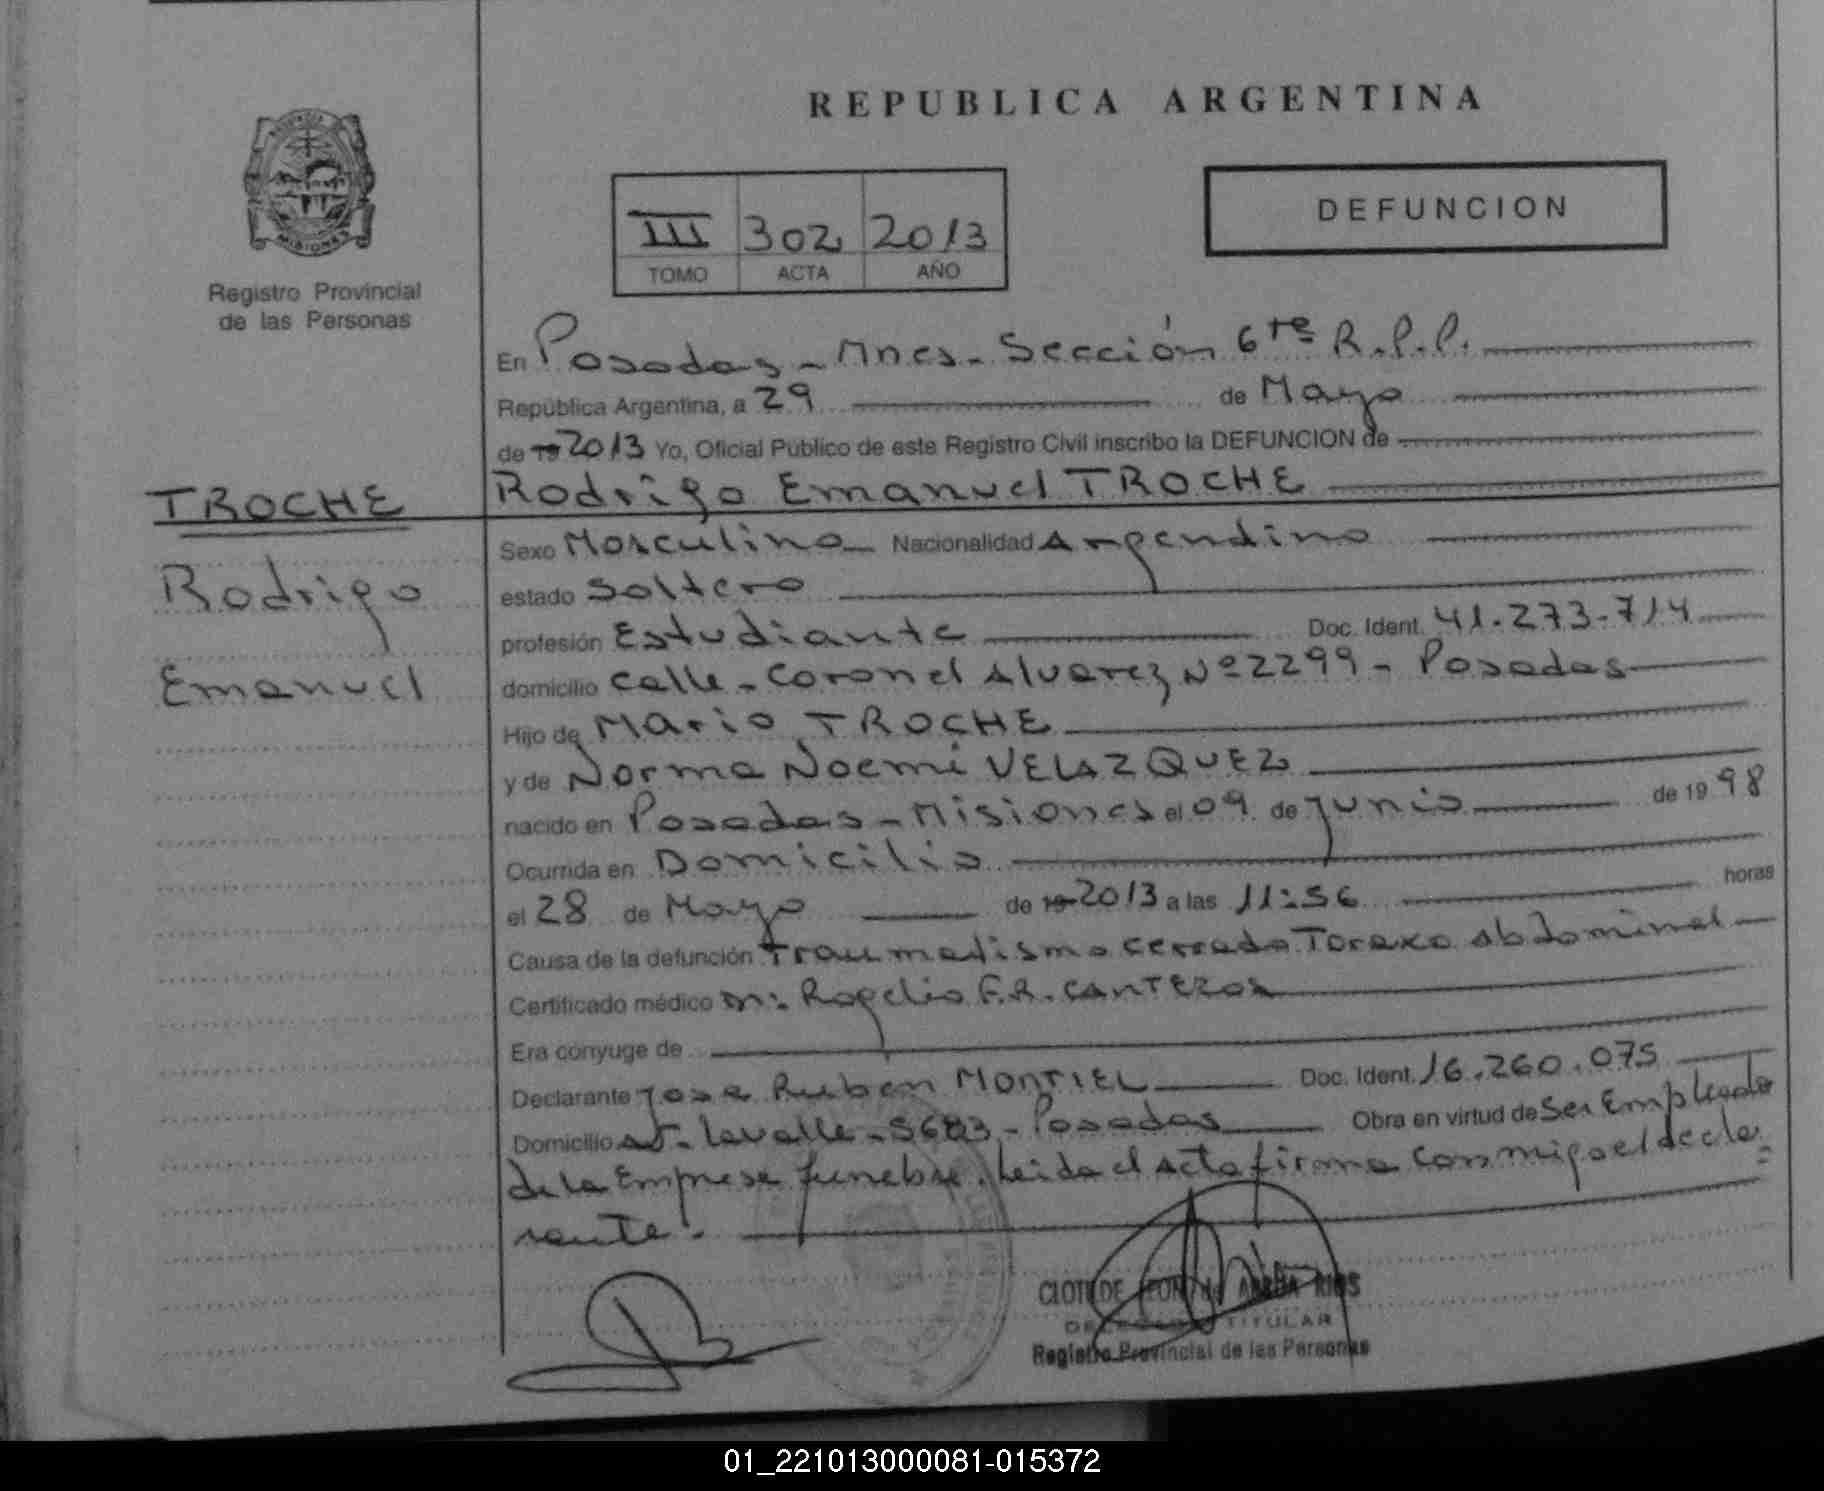 REPUBLICA ARGENTINA
MISIONES
Registro Provincial
de las Personas
III 302 2013
TOMO ACTA AÑO
DEFUNCION
En Posadas - Mnes - Sección 6ta R.P.P.
República Argentina, a 29 de Mayo
de 19 2013 Yo, Oficial Público de este Registro Civil inscribo la DEFUNCION de
Rodrigo Emanuel TROCHE
TROCHE
Rodrigo
Emanuel
Sexo Masculino Nacionalidad Argentino
estado Soltero
profesión Estudiante Doc. Ident. 41.273.714
domicilio calle - Coronel Alvarez Nº 2299 - Posadas
Hijo de Mario TROCHE
y de Norma Noemi VELAZQUEZ
nacido en Posadas - Misiones el 09 de junio de 1998
Ocurrida en Domicilio
el 28 de Mayo de 19 2013 a las 11:56 horas
Causa de la defunción traumatismo cerrado Toraxo abdominal
Certificado médico Dr: Rogelio F.R. CANTEROS
Era cónyuge de
Declarante Jose Ruben MONTIEL Doc. Ident. 16.260.075
Domicilio Lavalle - Posadas Obra en virtud de Ser Empleado
de la Empresa funebre. Leida el acta firma conmigo el decla=
rante.
CLOTILDE RIOS
TITULAR
Registro Provincial de las Personas
01_221013000081-015372